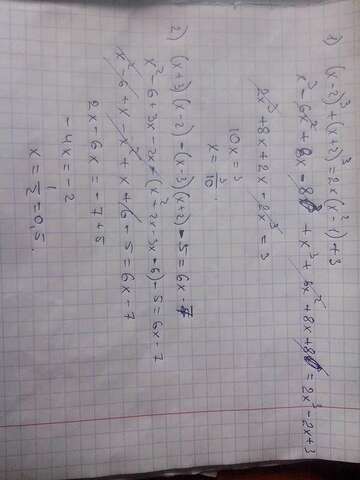 1) (x-2)³+(x+2)³=2x(x²-1)+3
x³-6x²+8x-8+x³+6x²+8x+8=2x³-2x+3
2x³+8x+2x-2x³=3
10x=3
x=3/10.
2) (x+3)(x-2)-(x-3)(x+2)-5=6x-7
x²-6+3x-2x-(x²-2x-3x-6)-5=6x-7
x²-6+x-x²+x+6-5=6x-7
2x-6x=-7+5
-4x=-2
x=1/2=0,5.